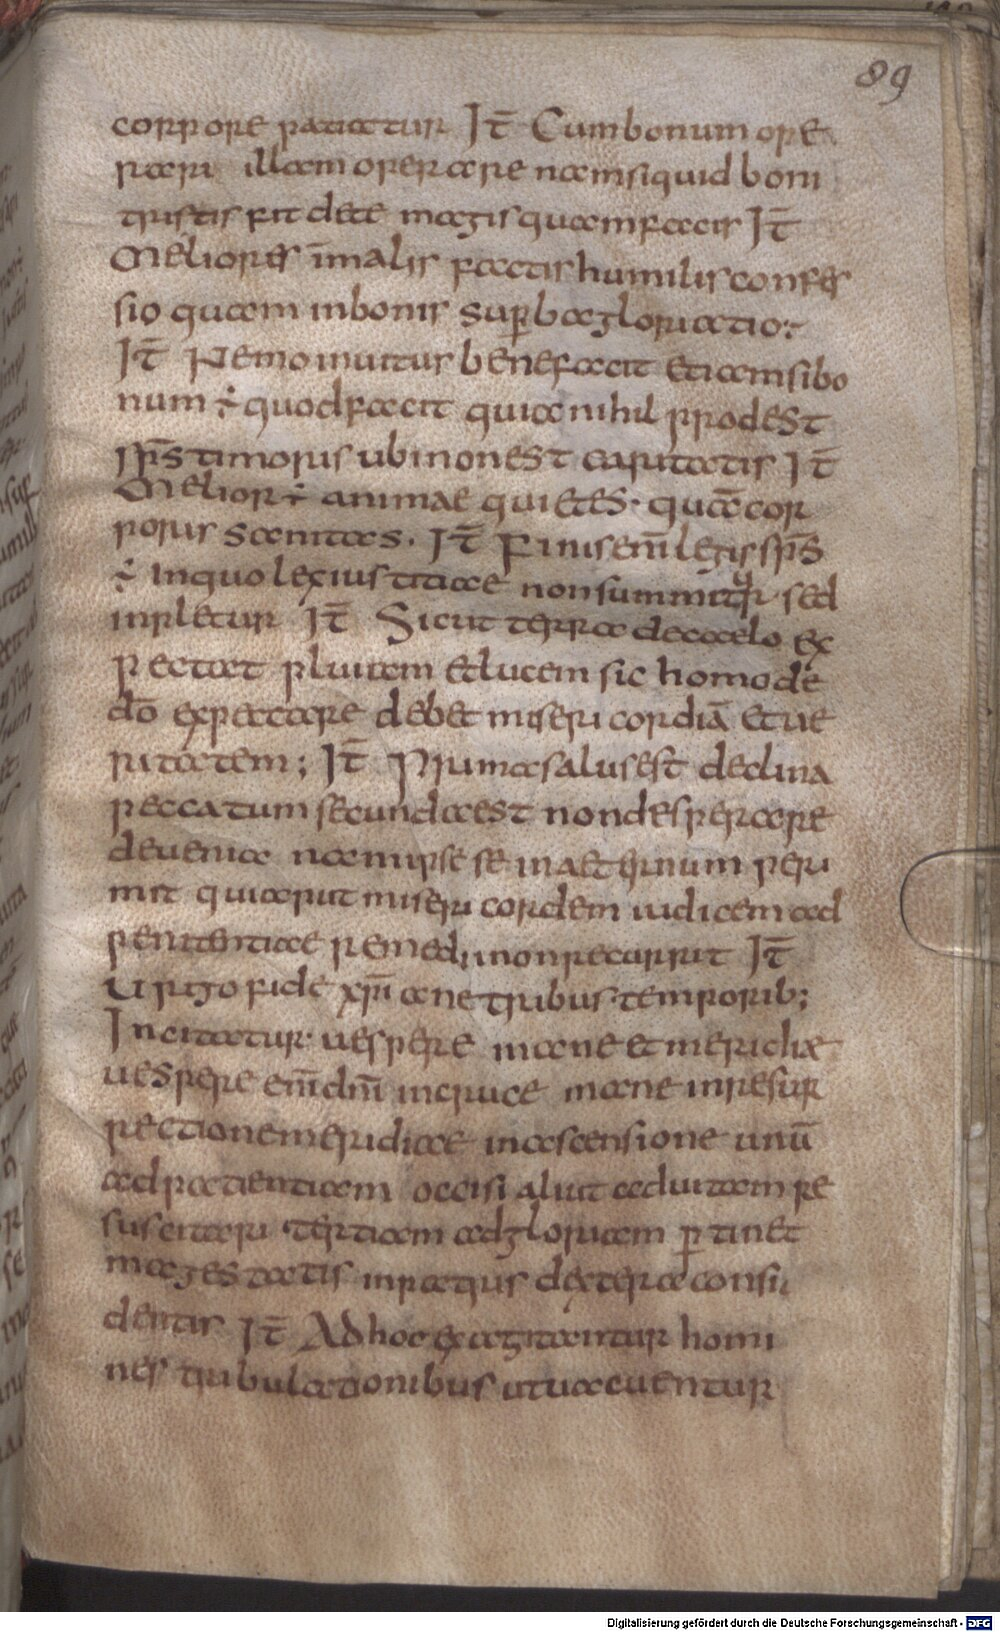 89
corpore patiatur It̄ Cum bonum ope
rari illam operare nam siquid boni
tristis fit dete magis quam facis It̄
Meliores inmalis factis humilis confes
sio quam inbonis superba gloriatio;
It̄ Nemo inuitus bene facit etiam si bo
num ÷ quod facit quia nihil prodest
sp̄s timoris ubi non est caritatis It̄
Melior ÷ animae quietes · quā cor
poris sanitas · It̄ Finis em̄ legis sp̄s
÷ inquo lex iustitiae non summitur sed
inpletur It̄ Sicut terra decaelo ex
pectat pluiam et lucem sic homo de
dō expectare debet misericordiā et ue
ritatem ; It̄ Prima salus est declina
peccatum secunda est non desperare
deuenia nam ipse se in aeternum peri
mit qui aput misericordem iudicem ad
penitentiae remedi non recurrit It̄
Uirgo fide xp̄i ane tribus temporib;
Incitatur uespere mane et meridiae
uespere em̄ dn̄i incruce mane inresur
rectione meridiae inascensione unū
ad patientiam occisi aluit ad uitam re
suscitari tertiam ad gloriam ꝑtinet
magestatis inpatris dextera consi
dentis It̄ Ad hoc exagitantur homi
nes tribulationibus ut uacuentur
Digitalisierung gefördert durch die Deutsche Forschungsgemeinschaft - DFG